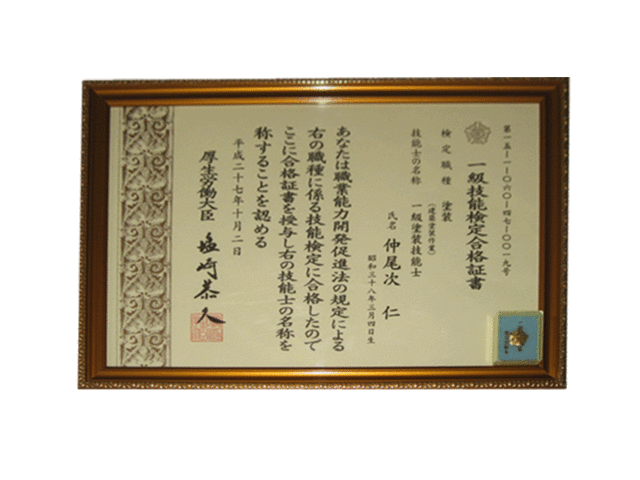 第一五-一-〇六〇-四七-〇〇一九号
一級技能検定合格証書
検定職種 塗装
(建築塗装作業)
技能士の名称 一級塗装技能士
氏名 仲尾次 仁
昭和三十八年三月四日生
あなたは職業能力開発促進法の規定による
右の職種に係る技能検定に合格したので
ここに合格証書を授与し右の技能士の名称を
称することを認める
平成二十七年十月二日
厚生労働大臣 塩崎恭久